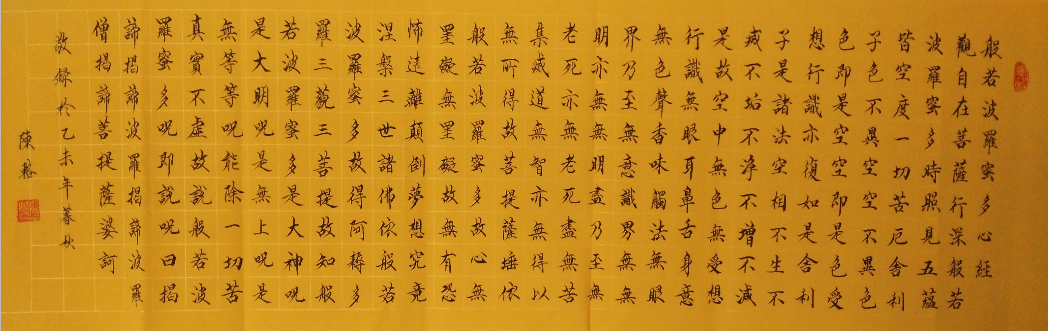 般若波羅蜜多心經
觀自在菩薩行深般若
波羅蜜多時照見五蘊
皆空度一切苦厄舍利
子色不異空空不異色
色即是空空即是色受
想行識亦復如是舍利
子是諸法空相不生不
滅不垢不淨不增不減
是故空中無色無受想
行識無眼耳鼻舌身意
無色聲香味觸法無眼
界乃至無意識界無無
明亦無無明盡乃至無
老死亦無老死盡無苦
集滅道無智亦無得以
無所得故菩提薩埵依
般若波羅蜜多故心無
罣礙無罣礙故無有恐
怖遠離顛倒夢想究竟
涅槃三世諸佛依般若
波羅蜜多故得阿耨多
羅三藐三菩提故知般
若波羅蜜多是大神呪
是大明呪是無上呪是
無等等呪能除一切苦
真實不虛故說般若波
羅蜜多呪即說呪曰揭
諦揭諦波羅揭諦波羅
僧揭諦菩提薩婆訶
敬錄於乙未年暮秋
陳